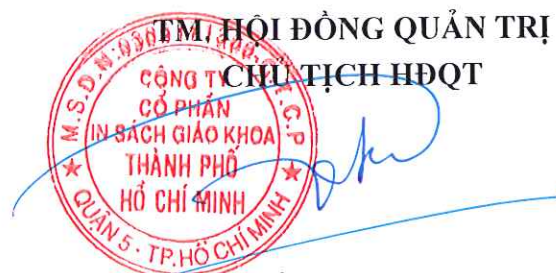 TM. HỘI ĐỒNG QUẢN TRỊ
CHỦ TỊCH HĐQT
CÔNG TY
CỔ PHẦN
IN SÁCH GIÁO KHOA
THÀNH PHỐ
HỒ CHÍ MINH
QUẬN 5 - TP. HỒ CHÍ MINH